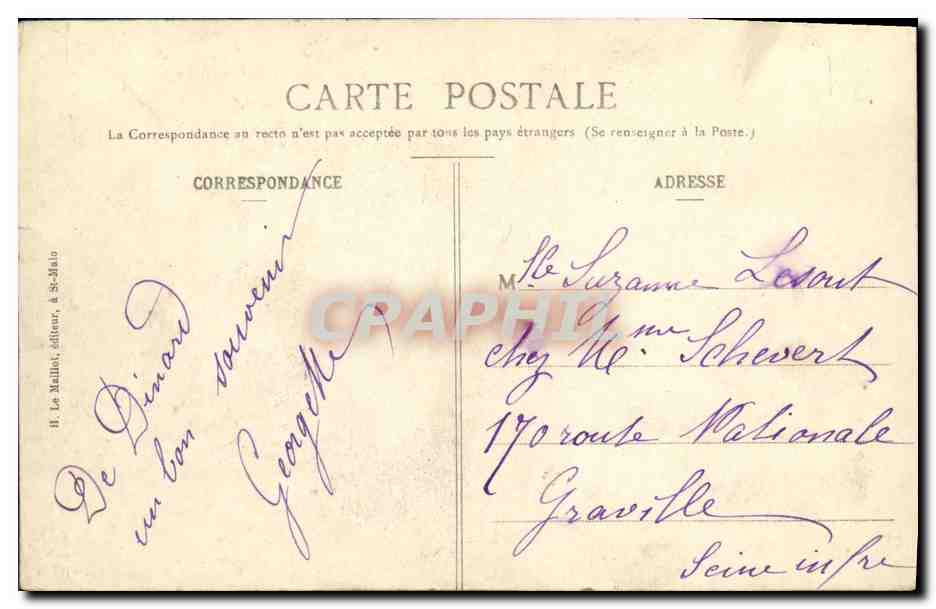 CARTE POSTALE
La Correspondance au recto n'est pas acceptée par tous les pays étrangers (Se renseigner à la Poste.)
CORRESPONDANCE
De Dinard
un bon souvenir
Georgette
ADRESSE
Mlle Suzanne Lesout
chez Mme Schevert
170 route Nationale
Graville
Seine infre
H. Le Maillot, éditeur, à St-Malo
CPAPHIL